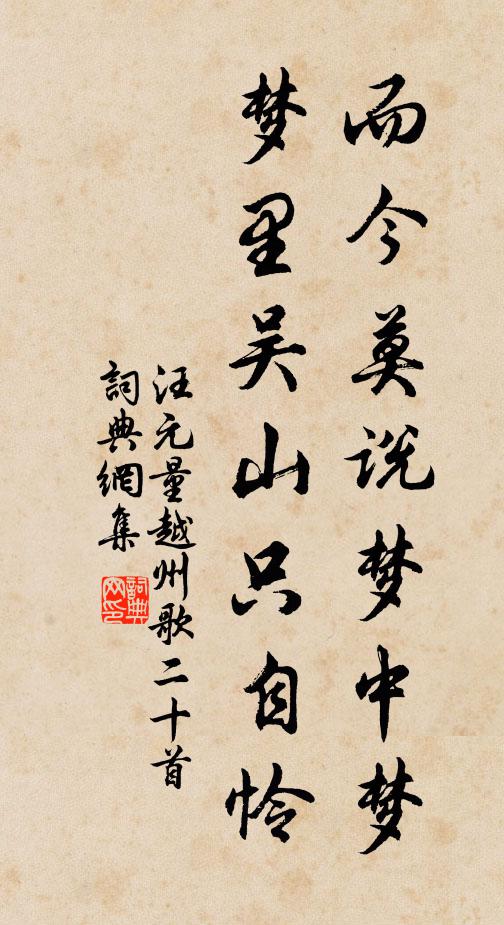 而今莫说梦中梦
梦里吴山只自怜
汪元量越州歌二十首
詞典網集
詞典网印